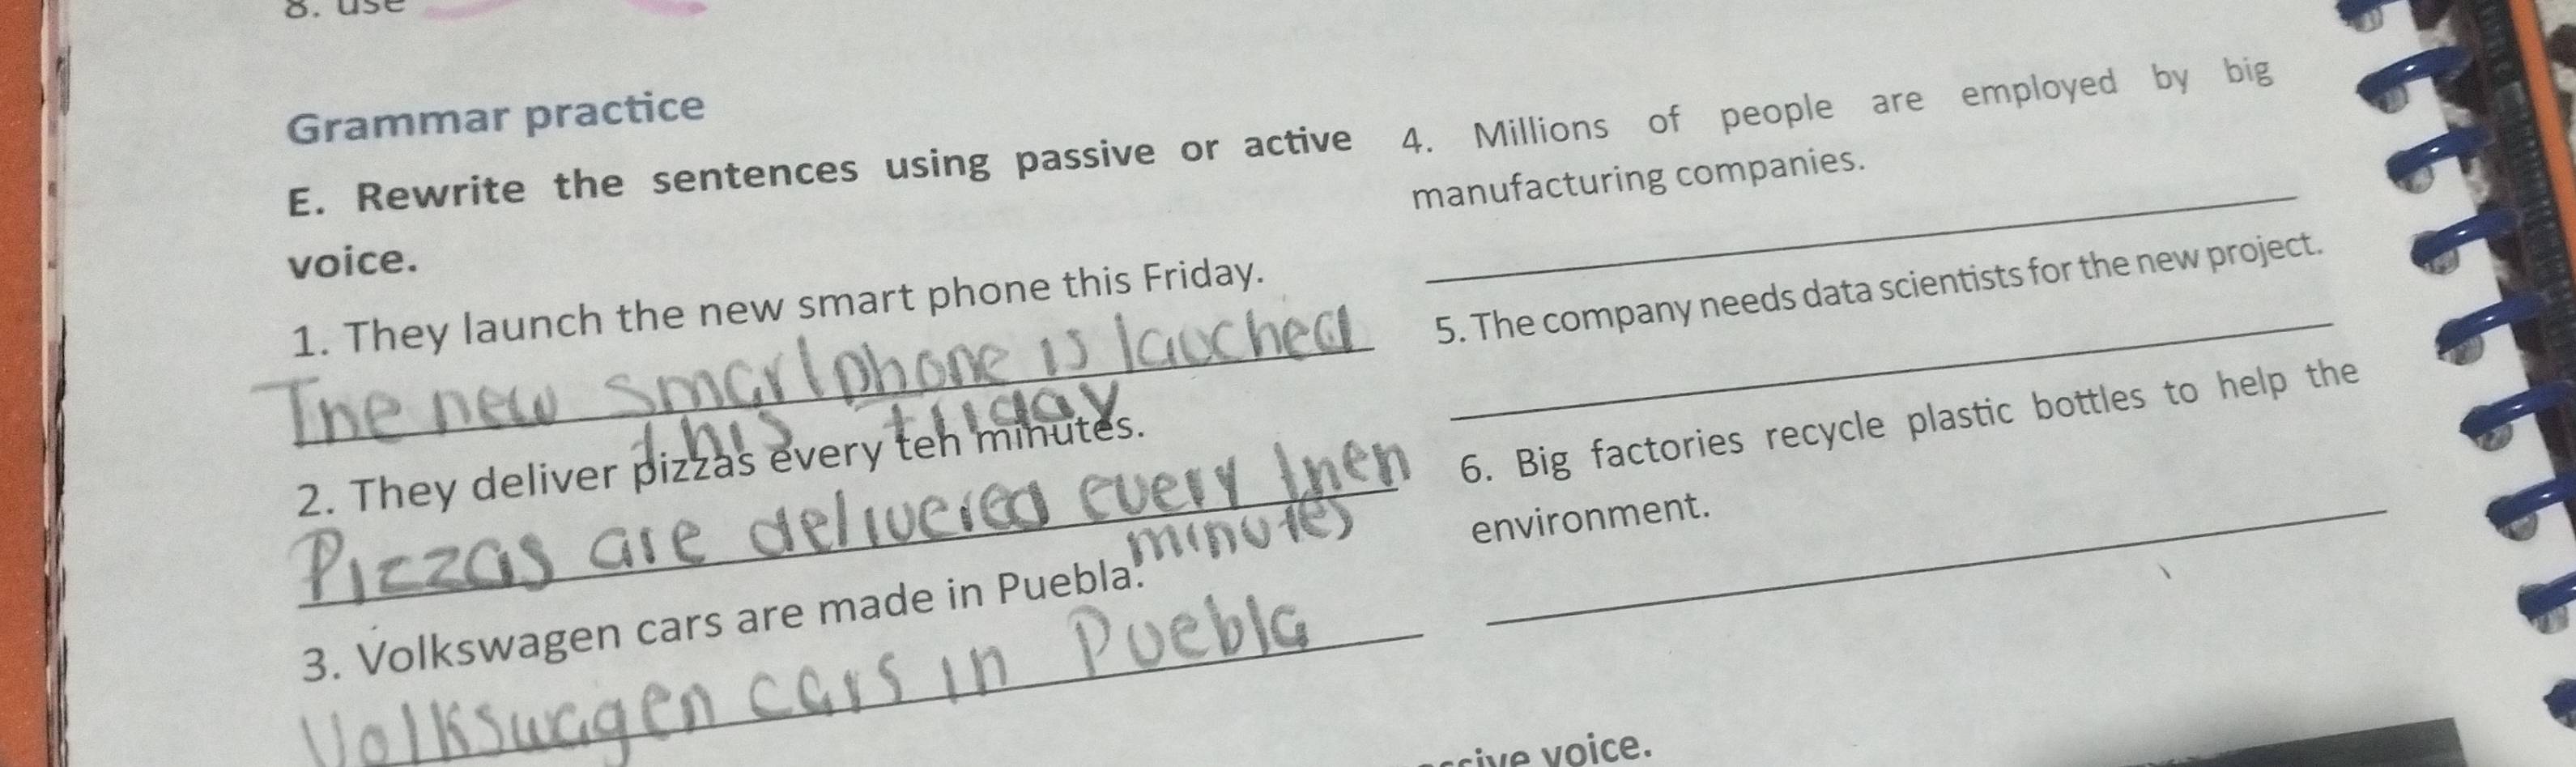 8. use
Grammar practice
E. Rewrite the sentences using passive or active
voice.
1. They launch the new smart phone this Friday.
The new smart phone is lauched
this friday
2. They deliver pizzas every teh minutes.
Pizzas are delivered every tnen
minutes
3. Volkswagen cars are made in Puebla.
Volkswagen cars in Puebla
4. Millions of people are employed by big
manufacturing companies.
5. The company needs data scientists for the new project.
6. Big factories recycle plastic bottles to help the
environment.
voice.